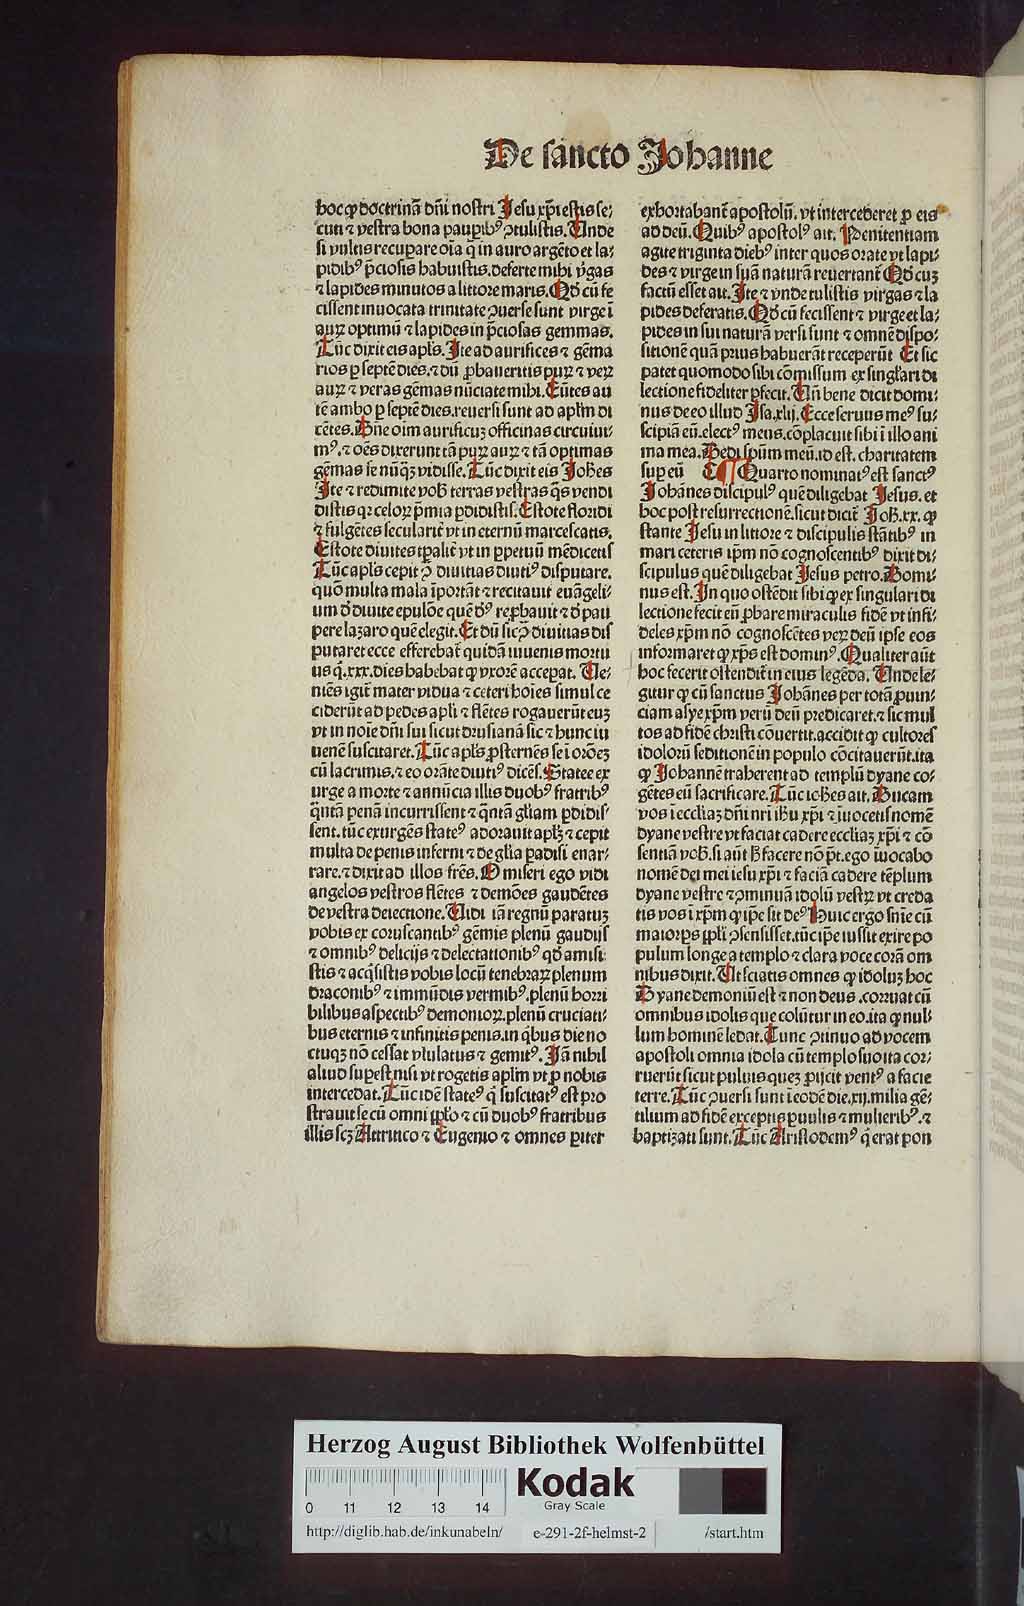 De sancto Johanne
hocꝙ doctrinā dn̄i nostri Jesu xp̄i estis se⸗
cuti ⁊ vestra bona pauꝑibꝰ ꝯtulistis. Unde
si vultis recuꝑare oīa q̄ in auro argēto et la⸗
pidibꝰ p̄ciosis habuistis. deferte mihi v̄gas
⁊ lapides minutos a littore maris. Qd̄ cū fe
cissent inuocata trinitate ꝯuerse sunt virge ī
auꝝ optimū ⁊ lapides in p̄ciosas gemmas.
Tūc dixit eis apl̄s. Ite ad aurifices ⁊ gēma
rios ꝑ septē dies. ⁊ dū ꝓbaueritis puꝝ ⁊ veꝝ
auꝝ ⁊ veras gēmas nūciate mihi. Eūtes au
tē ambo ꝑ septē dies. reuersi sunt ad apl̄m di
cētes. Dn̄e oīm aurificuꝫ officinas circuiui⸗
mꝰ. ⁊ oēs dixerunt tā puꝝ auꝝ ⁊ tā optimas
gēmas se nūqꝫ vidisse. Tūc dixit eis Johēs
Ite ⁊ redimite vob̄ terras vestras q̄s vendi
distis qꝛ celoꝝ p̄mia ꝑdidistis. Estote floridi
⁊ fulgētes seculariť vt in eternū marcescatis.
Estote diuites tꝑaliť vt in ꝑpetuū mēdicetis
Tūc apl̄s cepit ꝯ diuitias diutiꝰ disputare.
quō multa mala īportāt ⁊ recitauit euāgeli⸗
um d̄ diuite epulōe quē dꝰ reꝓbauit ⁊ d̄ pau
pere lazaro quē elegit. Et dū sic ꝯ diuitias dis
putaret ecce efferebať quidā iuuenis mortu
us q̄. xxx. dies habebat ꝙ vxorē acceꝑat. Ve⸗
niēs igiť mater vidua ⁊ ceteri hoīes simul ce
ciderūt ad pedes apl̄i ⁊ flētes rogauerūt euꝫ
vt in noīe dn̄i sui sicut drusianā sic ⁊ hunc iu
uenē suscitaret. Tūc apl̄s ꝓsternēs se ī orōeꝫ
cū lacrimis. ⁊ eo orāte diutiꝰ dicēs. Statee ex
urge a morte ⁊ annūcia illis duobꝰ fratribꝰ
q̄ntā penā incurrissent ⁊ q̄ntā gl̄iam ꝑdidis⸗
sent. tūc exurgēs stateꝰ adorauit apl̄ꝫ ⁊ cepit
multa de penis inferni ⁊ de gl̄ia ꝑadisi enar⸗
rare. ⁊ dixit ad illos fr̄es. O miseri ego vidi
angelos vestros flētes ⁊ demōes gaudētes
de vestra deiectione. Vidi iā regnū paratuꝫ
vobis ex coruscantibꝰ gēmis plenū gaudijs
⁊ omnibꝰ delicijs ⁊ delectationibꝰ qd̄ amisi⸗
stis ⁊ acq̄sistis vobis locū tenebraꝝ plenum
draconibꝰ ⁊ immūdis vermibꝰ. plenū horri
bilibus aspectibꝰ demonioꝝ. plenū cruciati⸗
bus eternis ⁊ infinitis penis. in q̄bus die no
ctuqꝫ nō cessat vlulatus ⁊ gemitꝰ. Iā nihil
aliud suꝑest nisi vt rogetis apl̄m vt ꝓ nobis
intercedat. Tūc idē stateꝰ q̄ suscitatꝰ est pro
strauit se cū omni ꝓl̄o ⁊ cū duobꝰ fratribus
illis scꝫ Attritico ⁊ Eugenio ⁊ omnes ꝑiter
exhortabant̄ apostolū. vt intercederet ꝓ eis
ad deū. Quibꝰ apostolꝰ ait. Penitentiam
agite triginta diebꝰ inter quos orate vt lapi⸗
des ⁊ virge in suā naturā reuertant̄ Qd̄ cuꝫ
factū esset ait. Ite ⁊ vnde tulistis virgas ⁊ la
pides deferatis. Qd̄ cū fecissent ⁊ virge et la⸗
pides in sui naturā versi sunt ⁊ omnē dispo⸗
sitionē quā prius habuerāt receperūt Et sic
patet quomodo sibi cōmissum ex singl̄ari di
lectione fideliter ꝑfecit. Vn̄ bene dicit domi⸗
nus de eo illud Isa. xlij. Ecce seruus meꝰ su⸗
scipiā eū. electꝰ meus. cōplacuit sibi ī illo ani
ma mea. Dedi sp̄um meū. id est. charitatem
suꝑ eū ¶ Quarto nominatꝰ est sanctꝰ
Johānes discipulꝰ quē diligebat Jesus. et
hoc post resurrectionē. sicut dicit̄ Joh̄. xx. ꝙ
stante Jesu in littore ⁊ discipulis stātibꝰ in
mari ceteris ip̄m nō cognoscentibꝰ dixit di⸗
scipulus quē diligebat Jesus petro. Domi⸗
nus est. In quo ostēdit sibi ꝙ ex singulari di
lectione fecit eū ꝓbare miraculis fidē vt infi⸗
deles xp̄m nō cognoscētes veꝝ deū ipse eos
informaret ꝙ xp̄s est dominꝰ. Qualiter aūt
hoc fecerit ostendit̄ in eius legēda. Unde le⸗
gitur ꝙ cū sanctus Johānes per totā ꝓuin⸗
ciam asye xp̄m verū deū predicaret. ⁊ sic mul
tos ad fidē christi cōuertit. accidit ꝙ cultores
idolorū seditionē in populo cōcitauerūt. ita
ꝙ Johannē traherent ad templū dyane co⸗
gētes eū sacrificare. Tūc ioh̄es ait. Ducam
vos ī eccl̄iaꝫ dn̄i nr̄i ih̄u xp̄i ⁊ īuocetis nomē
dyane vestre vt faciat cadere eccl̄iaꝫ xp̄i ⁊ cō
sentiā vob̄. si aūt h̄ facere nō p̄t. ego īuocabo
nomē dei mei iesu xp̄i ⁊ faciā cadere tēplum
dyane vestre ⁊ ꝯminuā idolū vestꝝ vt creda
tis vos ī xp̄m ꝙ ip̄e sit deꝰ Huic ergo sn̄ie cū
maior ꝑs ꝓpl̄i ꝯsensisset. tūc ip̄e iussit exire po
pulum longe a templo ⁊ clara voce corā om
nibus dixit. Ut sciatis omnes ꝙ idoluꝫ hoc
Dyane demoniū est ⁊ non deus. corruat cū
omnibus idolis que colūtur in eo. ita ꝙ nul⸗
lum hominē ledat. Tunc ꝯtinuo ad vocem
apostoli omnia idola cū templo suo ita cor⸗
ruerūt sicut puluis queꝫ ꝓijcit ventꝰ a facie
terre. Tūc ꝯuersi sunt ī eodē die. xij. milia gē⸗
tilium ad fidē exceptis ꝑuulis ⁊ mulieribꝰ. ⁊
baptizati sunt. Tūc Aristodemꝰ q̄ erat pon
Herzog August Bibliothek Wolfenbüttel
0 11 12 13 14
Kodak
Gray Scale
http://diglib.hab.de/inkunabeln/ e-291-2f-helmst-2 /start.htm